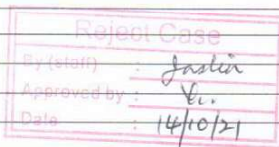 Reject Case
By (staff) :
Approved by :
Date : 14/10/21